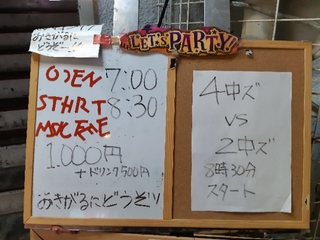 おきがるに
どうぞー!!
LET'S PARTY!
OPEN 7:00
START 8:30
1.000円
+ドリンク500円
おきがるにどうぞ!!
4中ズ
VS
2中ズ
8時30分
スタート